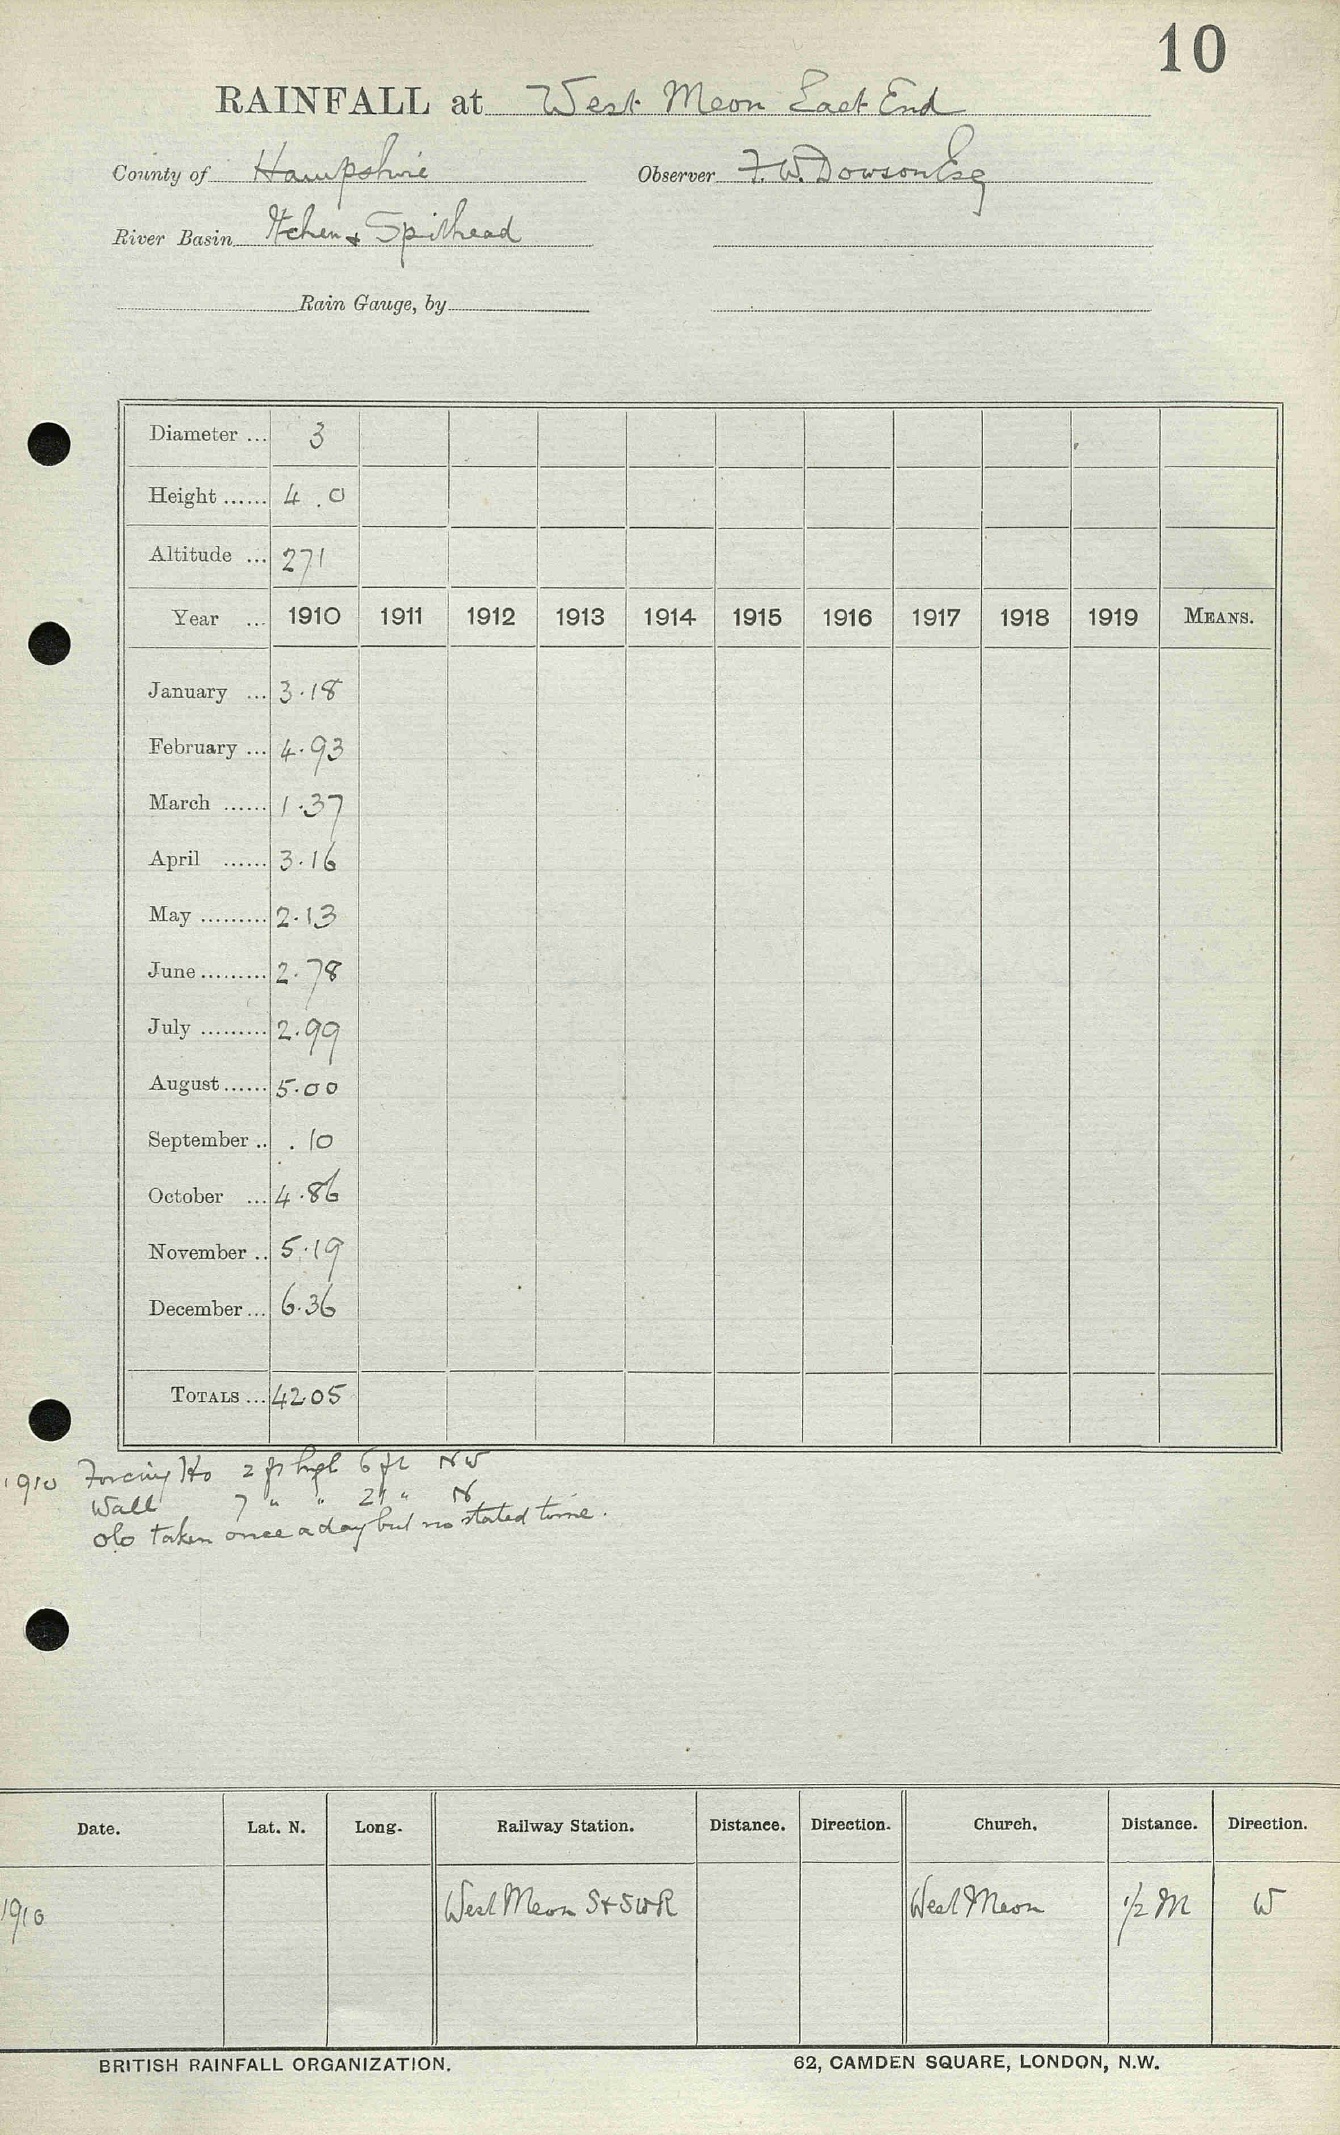 10
RAINFALL at West Meon East End
County of Hampshire Observer F. W. Dowson Esq
River Basin Itchen & Spithead
Rain Gauge, by
Diameter ... 3
Height ...... 4 .0
Altitude ... 271
Year ... 1910 1911 1912 1913 1914 1915 1916 1917 1918 1919 MEANS.
January ... 3.18
February ... 4.93
March ...... 1.37
April ...... 3.16
May ......... 2.13
June ......... 2.78
July ......... 2.99
August ...... 5.00
September .. .10
October ... 4.86
November .. 5.19
December ... 6.36
TOTALS ... 42.05
1910 Forcing Ho 2 ft high 6 ft NW
Wall 7 " " 21 " N
obs taken once a day but no stated time.
Date. Lat. N. Long. Railway Station. Distance. Direction. Church. Distance. Direction.
1910 West Meon S+SWR West Meon 1/2 M W
BRITISH RAINFALL ORGANIZATION. 62, CAMDEN SQUARE, LONDON, N.W.